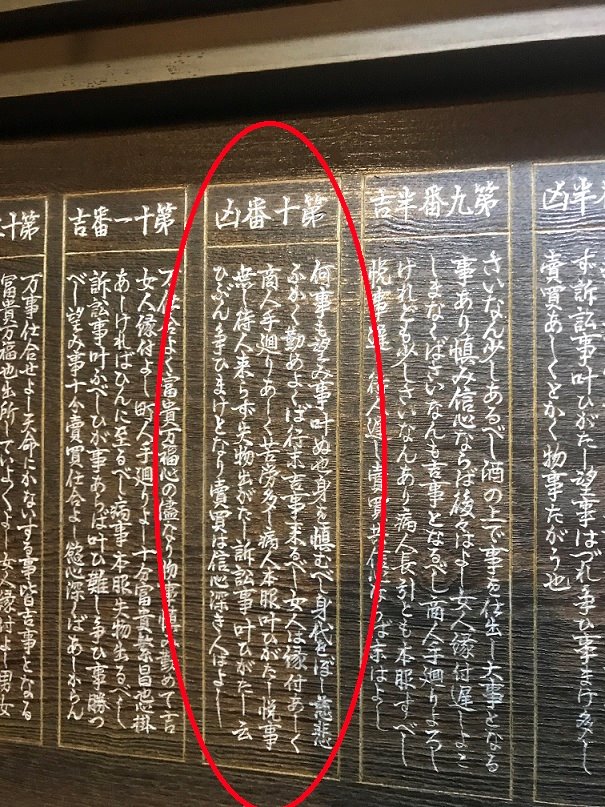 半凶
ず訴訟事叶ひがたし望事はづれ争ひ事まけ多し
賣買あしくとかく物事たがう也
第九番半吉
さいなん少しあるべし酒の上で事を仕出し大事となる
事あり慎み信心ならば後々はよし女人縁付遅しよこ
しまなくばさいなんも吉事となるべし商人手廻りよろし
けれども少しさいなんあり病人長引とも本服すべし
悦事遅 待人遅し賣買共信心ならば末はよし
第十番凶
何事も望み事叶ぬ也身を慎むべし身代をほし慈悲
ふかく勤めよくば行末吉事来るべし女人は縁付あしく
商人手廻りあしく苦労多し病人本服叶ひがたし悦事
無し待人来らず失物出がたし訴訟事叶ひがたし云
ひぶん争ひまけとなり賣買は信心深き人はよし
第十一番吉
万仕合よく富貴万福心の儘なり物事慎み勤めて吉
女人縁付よし町人手廻りよし十分富貴繁昌悪掛
あしければひんに至るべし病事本服失物出るべし
訴訟事叶ふべしひが事あらば叶ひ難し争ひ事勝つ
べし望み事十分賣買仕合よし 慾心深くばあしからん
第十
万事仕合せよし天命にかないする事皆吉事となる
富貴万福也出所していよくよし女人縁付よし男女